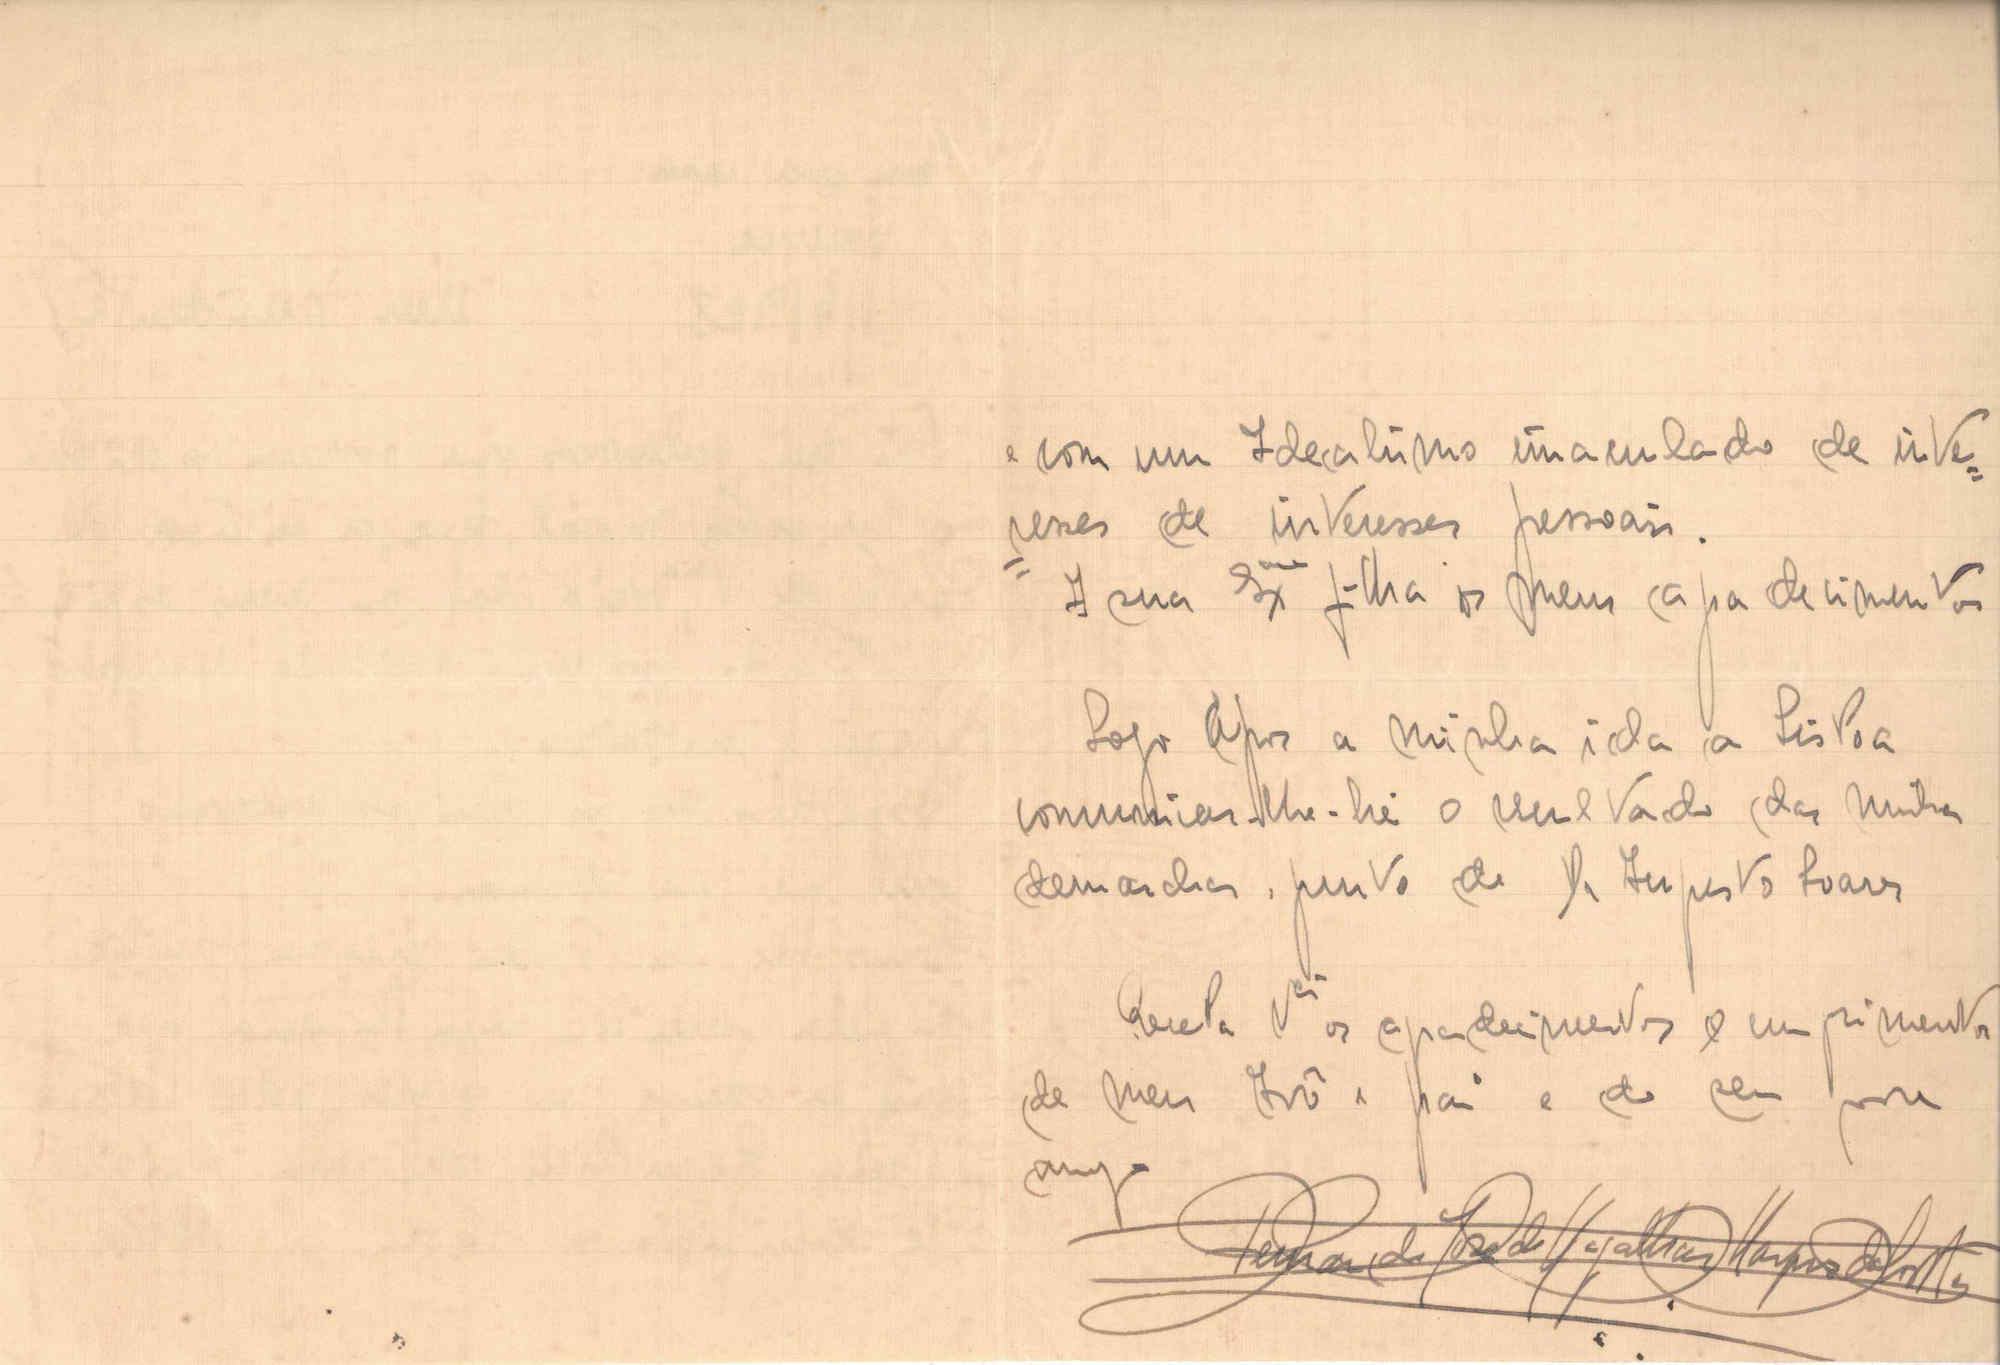 e com um Idealismo imaculado de inte=
=resses de interesses pessoais.
A sua Exma filha os meus agradecimentos
Logo após a minha ida a Lisboa
comunicar-lhe-hei o resultado das minhas
demarches, junto de Augusto Soares
Receba V. os agradecimentos e cumprimentos
de meu Avô e pai e do seu
amigo
Fernando José de Magalhães Marques da Costa